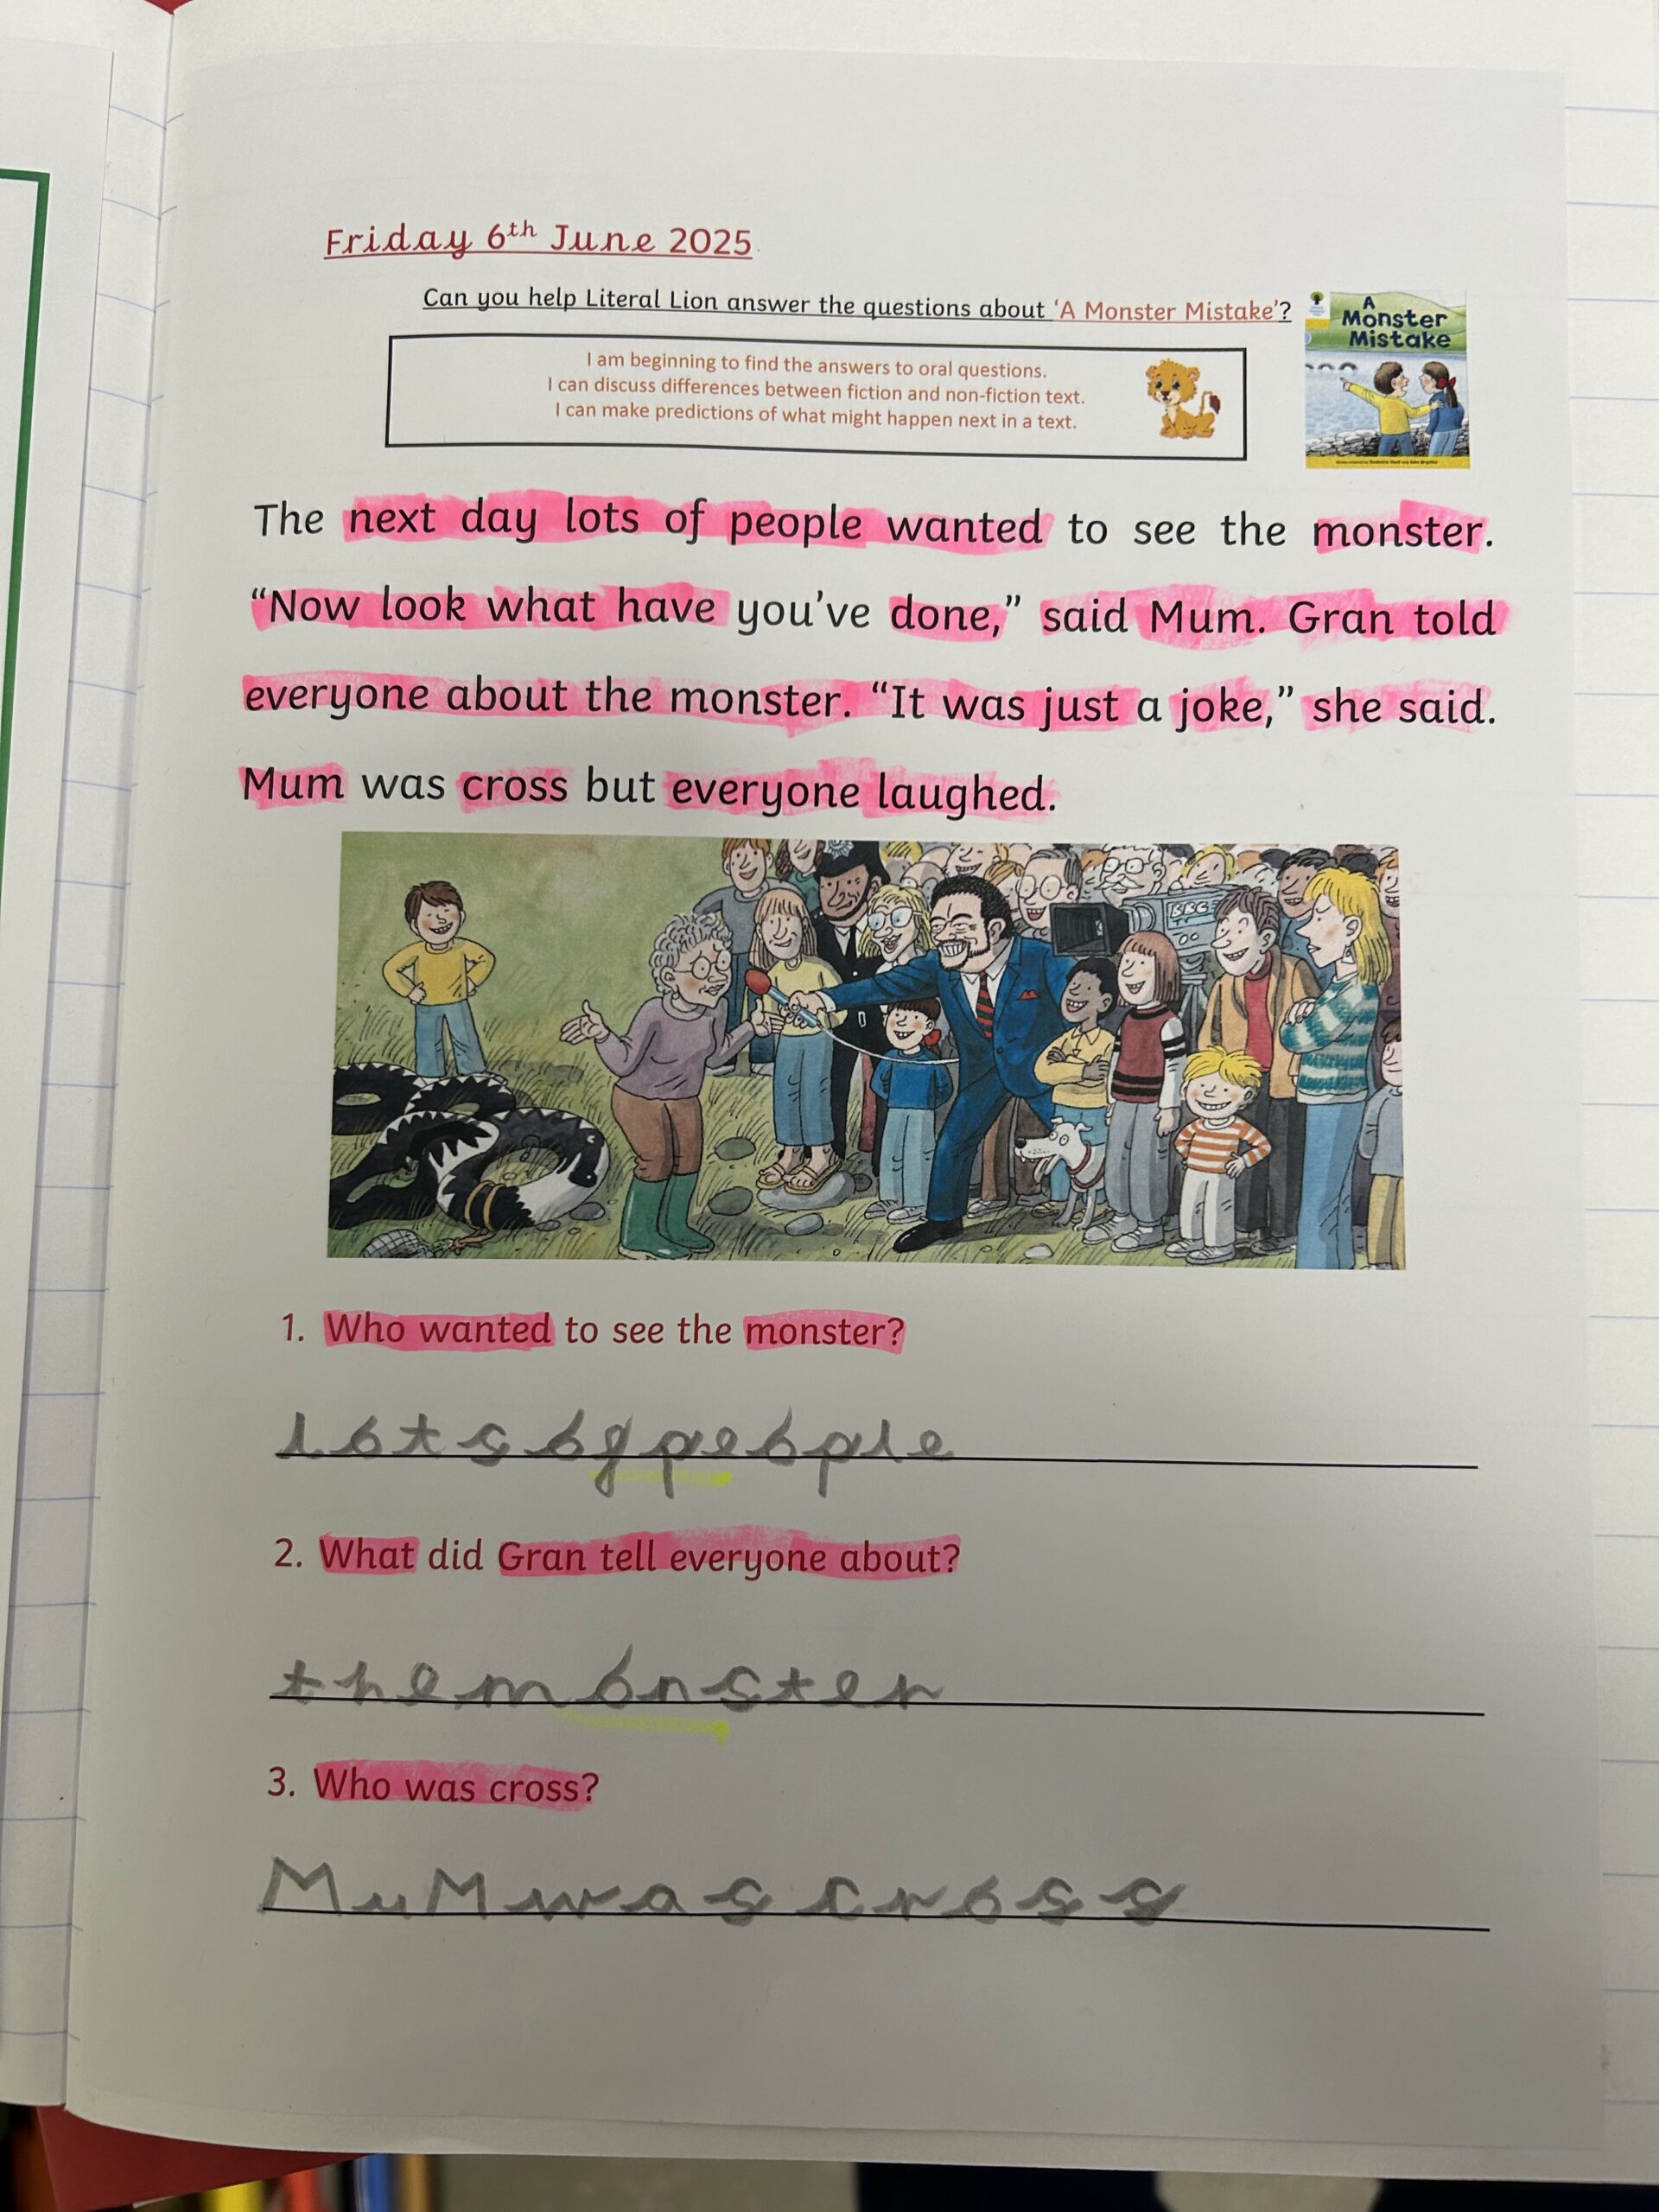 Friday 6th June 2025
Can you help Literal Lion answer the questions about ‘A Monster Mistake’?
A
Monster
Mistake
I am beginning to find the answers to oral questions.
I can discuss differences between fiction and non-fiction text.
I can make predictions of what might happen next in a text.
The next day lots of people wanted to see the monster.
“Now look what have you’ve done,” said Mum. Gran told
everyone about the monster. “It was just a joke,” she said.
Mum was cross but everyone laughed.
BBC
1. Who wanted to see the monster?
lots of people
2. What did Gran tell everyone about?
the monster
3. Who was cross?
MuM was cross